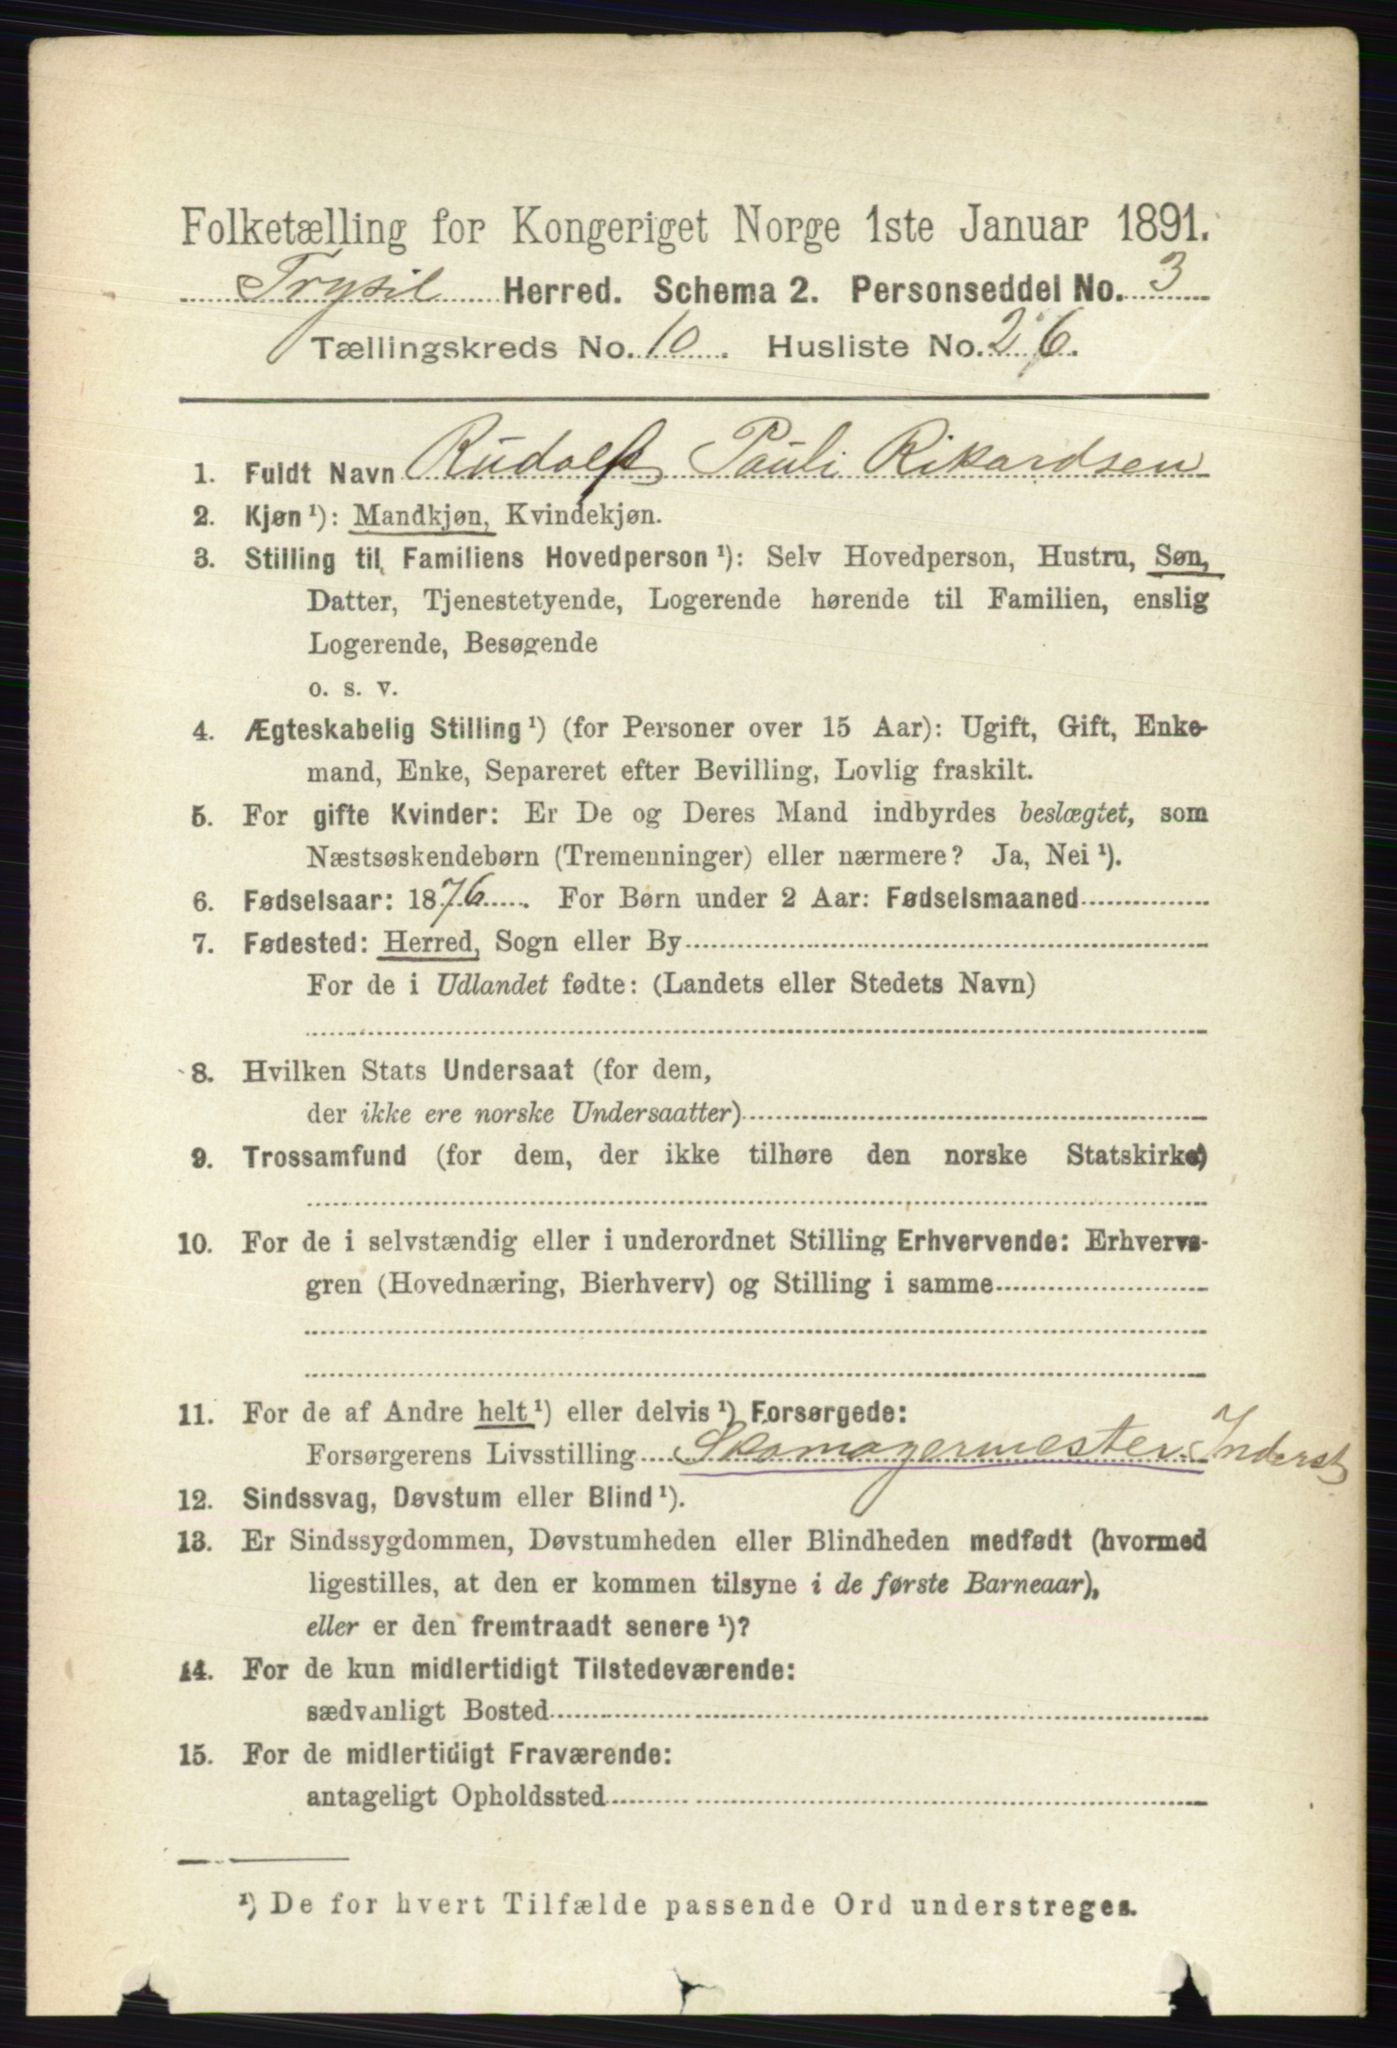 Folketælling for Kongeriget Norge 1ste Januar 1891.
Trysil Herred. Schema 2. Personseddel No. 3
Tællingskreds No. 10. Husliste No. 26.
1. Fuldt Navn Rudolf Pauli Rikardsen
2. Kjøn¹): Mandkjøn, Kvindekjøn.
3. Stilling til Familiens Hovedperson¹): Selv Hovedperson, Hustru, Søn,
Datter, Tjenestetyende, Logerende hørende til Familien, enslig
Logerende, Besøgende
o. s. v.
4. Ægteskabelig Stilling¹) (for Personer over 15 Aar): Ugift, Gift, Enke-
mand, Enke, Separeret efter Bevilling, Lovlig fraskilt.
5. For gifte Kvinder: Er De og Deres Mand indbyrdes beslægtet, som
Næstsøskendebørn (Tremenninger) eller nærmere? Ja, Nei¹).
6. Fødselsaar: 1876. For Børn under 2 Aar: Fødselsmaaned
7. Fødested: Herred, Sogn eller By
For de i Udlandet fødte: (Landets eller Stedets Navn)
8. Hvilken Stats Undersaat (for dem,
der ikke ere norske Undersaatter)
9. Trossamfund (for dem, der ikke tilhøre den norske Statskirke)
10. For de i selvstændig eller i underordnet Stilling Erhvervende: Erhvervs-
gren (Hovednæring, Bierhverv) og Stilling i samme
11. For de af Andre helt¹) eller delvis¹) Forsørgede:
Forsørgerens Livsstilling Skomagermester Inderst
12. Sindssvag, Døvstum eller Blind¹).
13. Er Sindssygdommen, Døvstumheden eller Blindheden medfødt (hvormed
ligestilles, at den er kommen tilsyne i de første Barneaar),
eller er den fremtraadt senere¹)?
14. For de kun midlertidigt Tilstedeværende:
sædvanligt Bosted
15. For de midlertidigt Fraværende:
antageligt Opholdssted
¹) De for hvert Tilfælde passende Ord understreges.